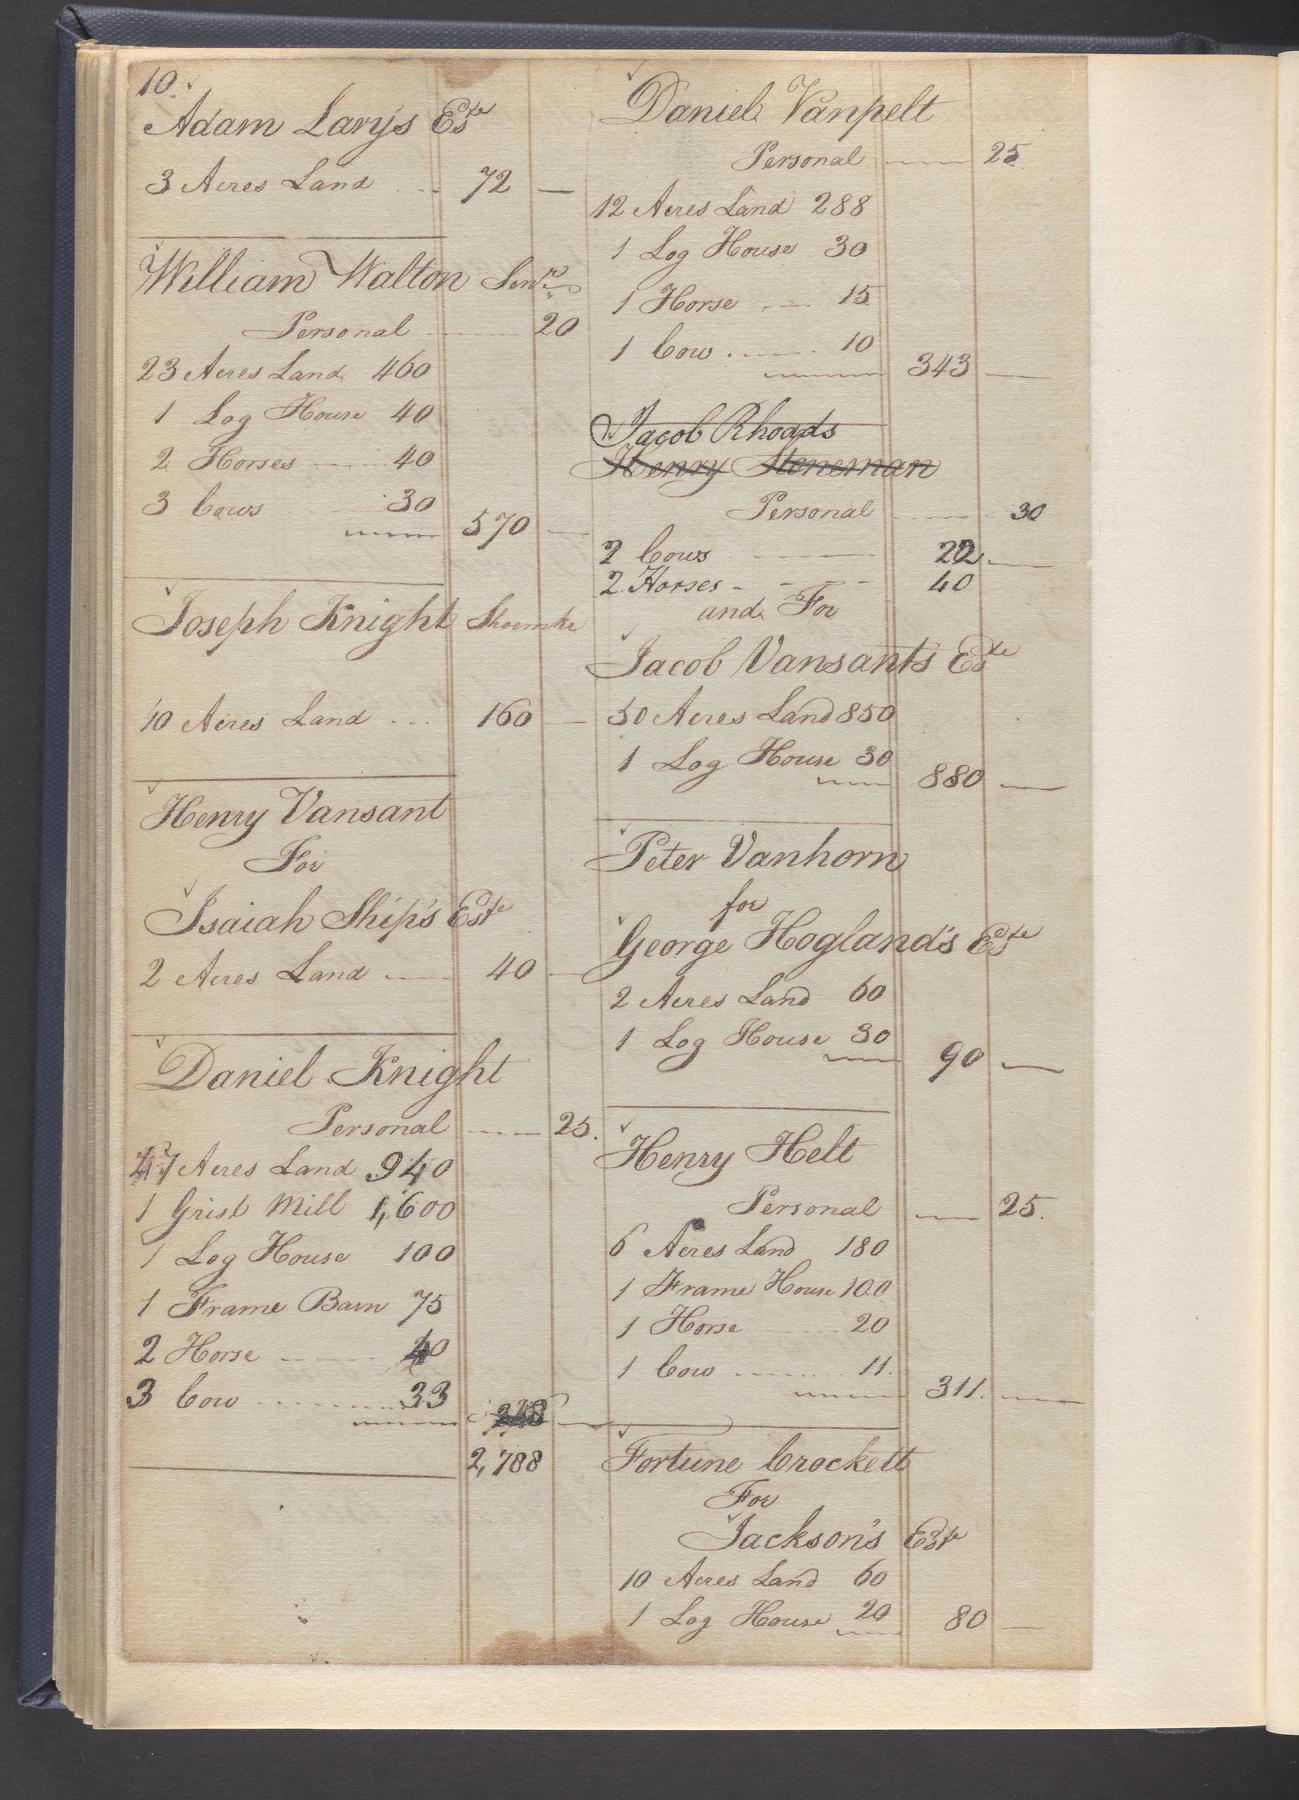 10.
Adam Lary's Este
3 Acres Land ... 72 —
William Walton Senr
Personal — 20
23 Acres Land 460
1 Log House 40
2 Horses ..... 40
3 Cows 30
570 —
Joseph Knight Shoemkr
10 Acres Land ... 160 —
Henry Vansant
For
Isaiah Ship's Este
2 Acres Land ..... 40 —
Daniel Knight
Personal ..... 25.
47 Acres Land 940
1 Grist Mill 1,600
1 Log House 100
1 Frame Barn 75
2 Horse ..... 40
3 Cow ......... 33
2,788
Daniel Vanpelt
Personal — 25
12 Acres Land 288
1 Log House 30
1 Horse .... 15
1 Cow ...... 10
343 —
Jacob Rhoads
Henry Stoneman
Personal ..... 30
2 Cows ..... 22 —
2 Horses - - - 40
and For
Jacob Vansant's Este
50 Acres Land 850
1 Log House 30
880 —
Peter Vanhorn
for
George Hogland's Este
2 Acres Land 60
1 Log House 30
90 —
Henry Helt
Personal — 25.
6 Acres Land 180
1 Frame House 100
1 Horse ..... 20
1 Cow ...... 11.
311. —
Fortune Crockett
For
Jackson's Este
10 Acres Land 60
1 Log House 20
80 —